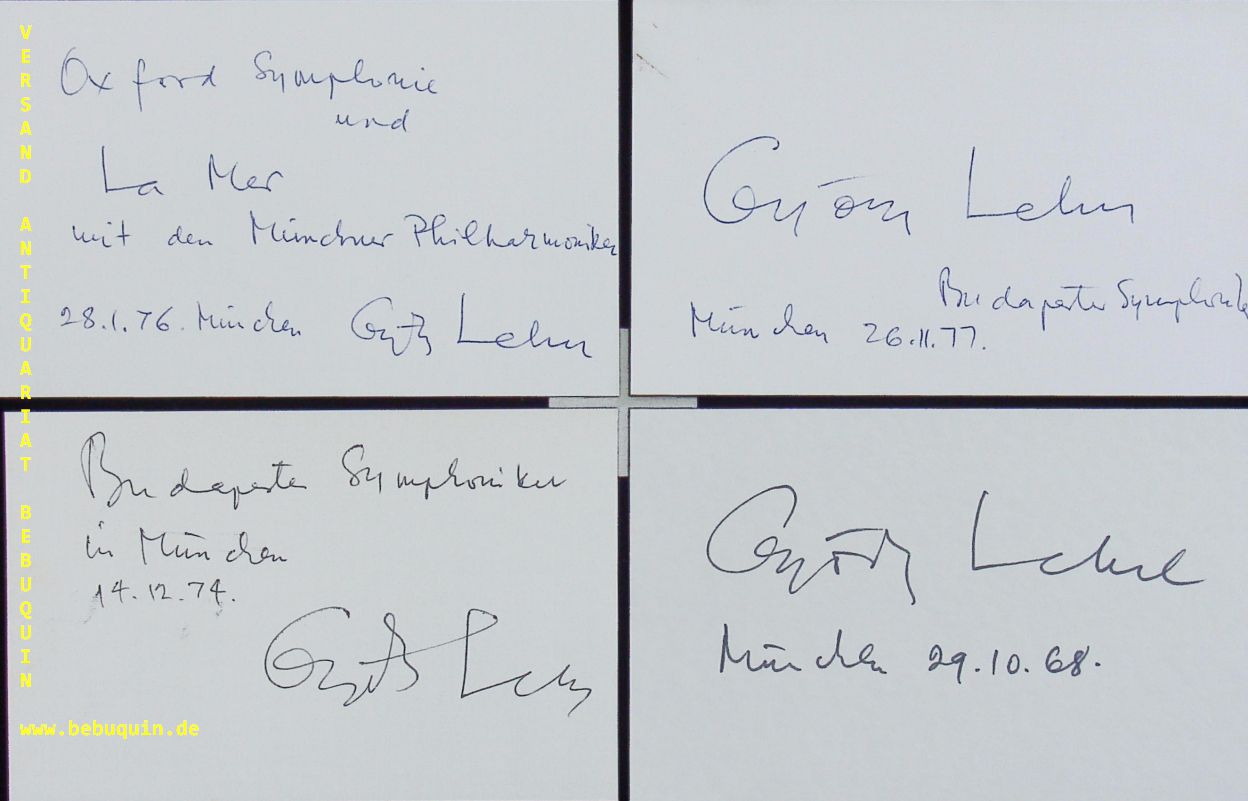 Oxford Symphonie
und
La Mer
mit den Münchner Philharmoniker
28.1.76. München György Lehel
György Lehel
Budapester Symphonik
München 26.11.77.
Budapester Symphoniker
in München
14.12.74.
György Lehel
György Lehel
München 29.10.68.
VERSAND ANTIQUARIAT BEBUQUIN
www.bebuquin.de